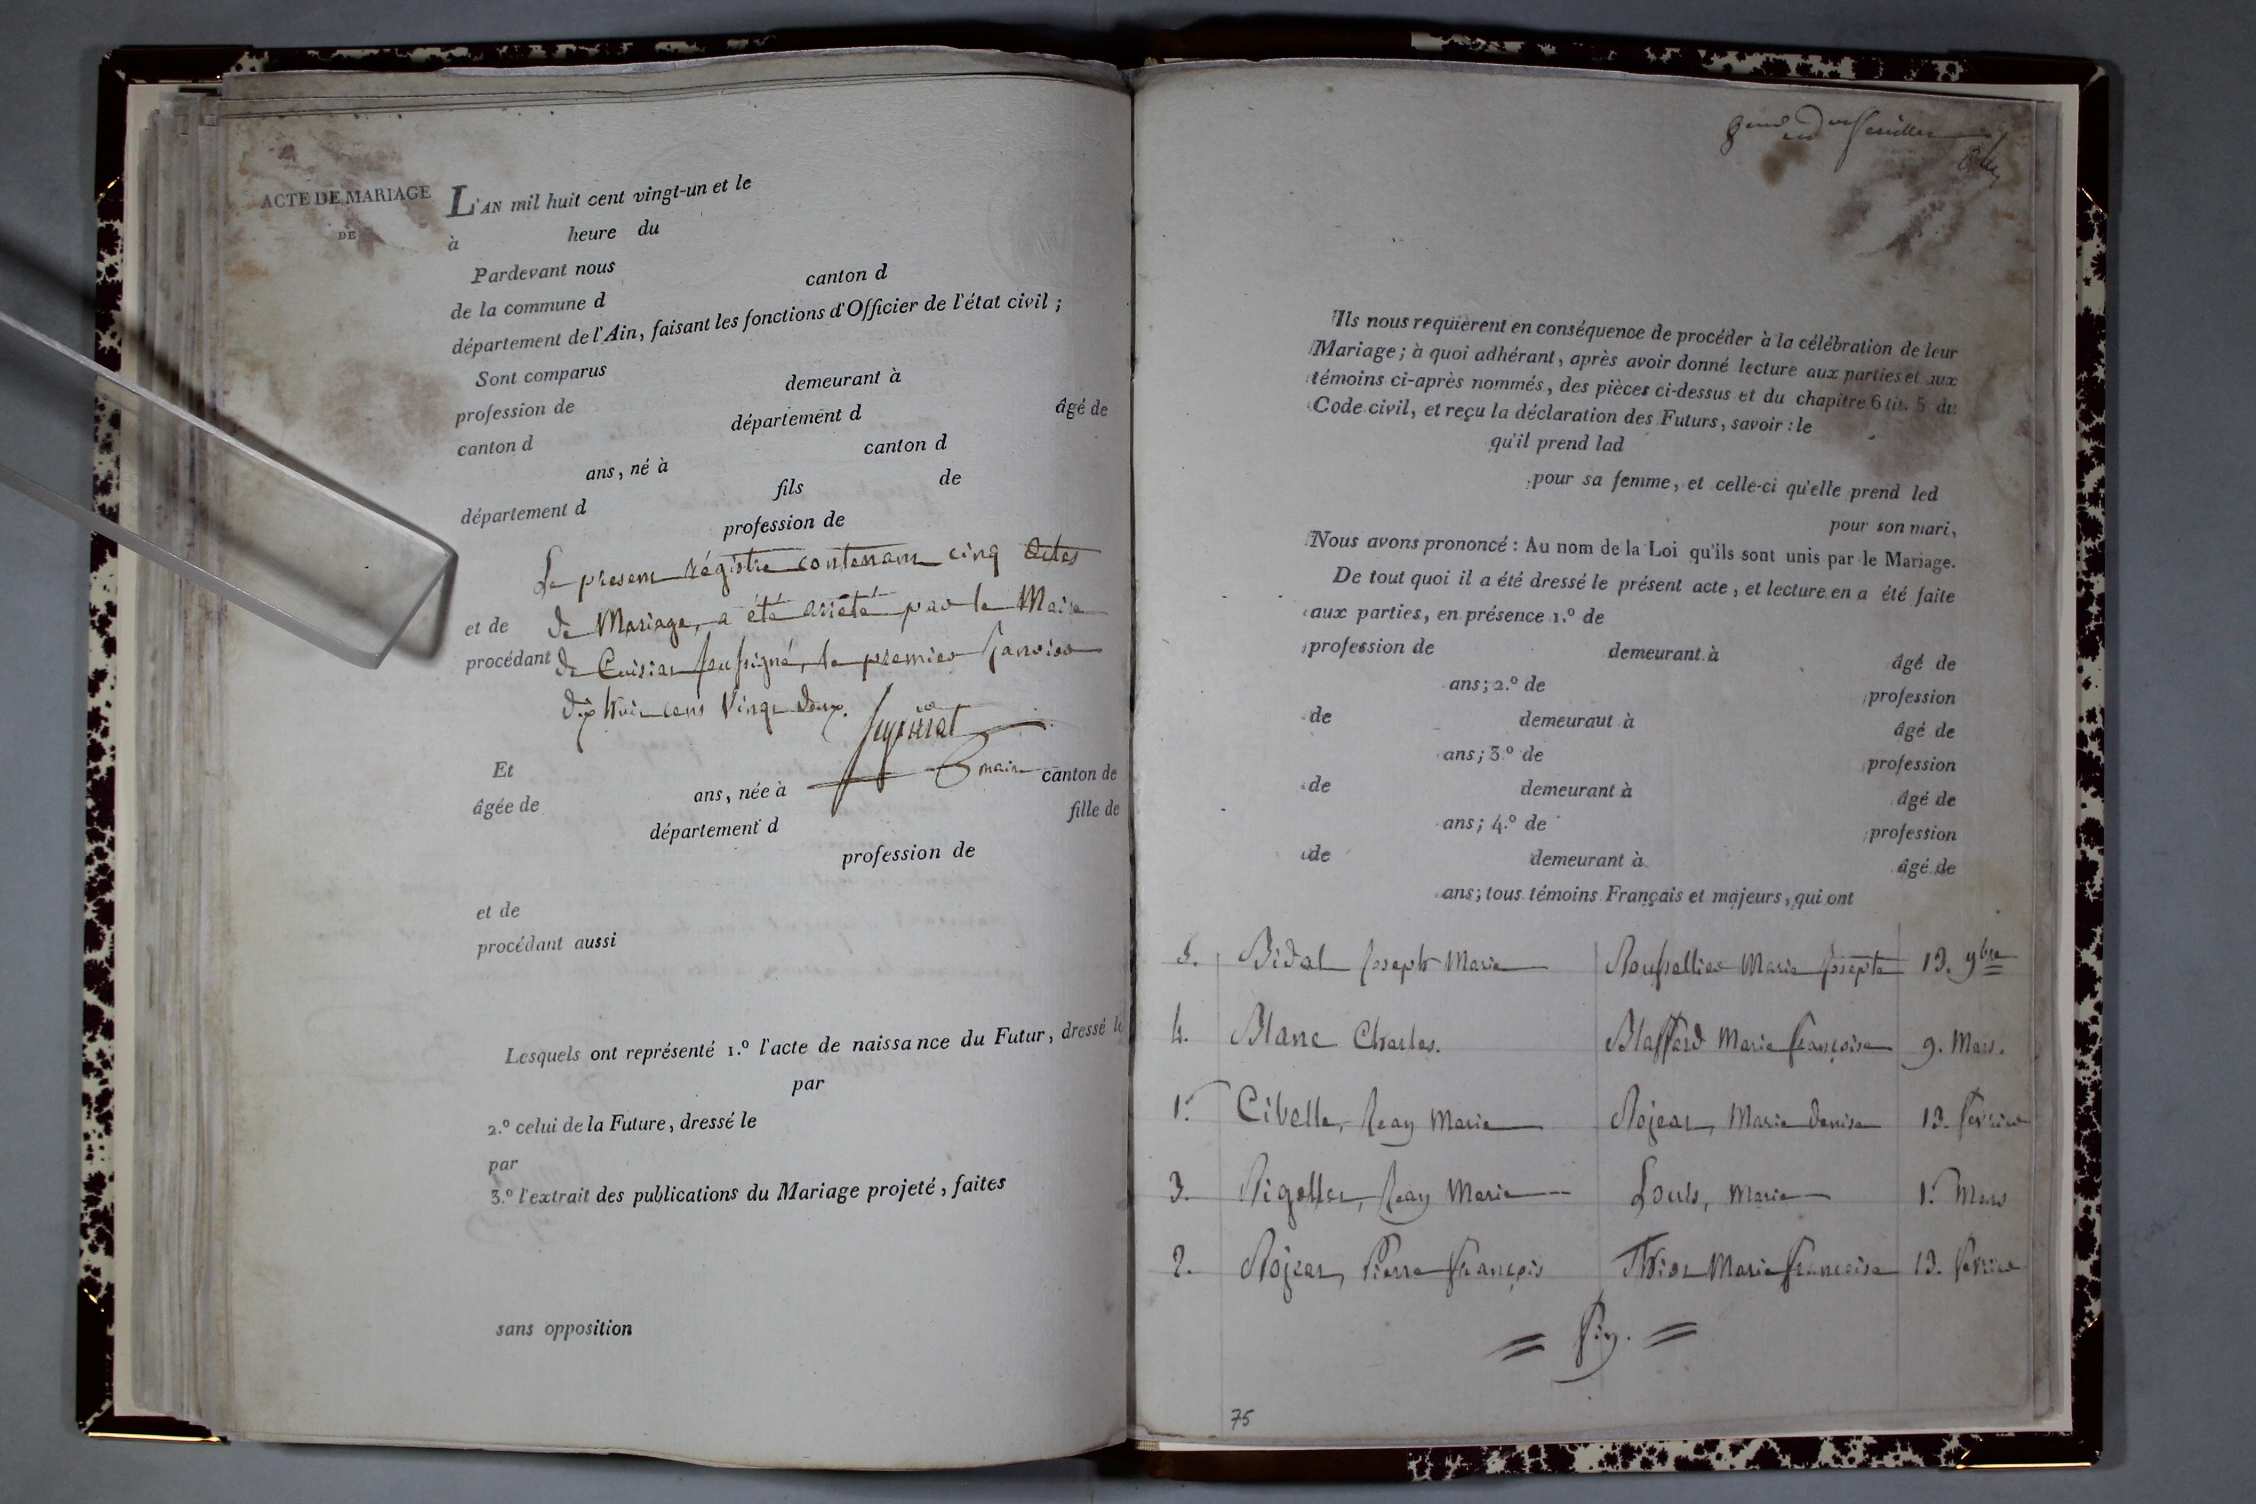 ACTE DE MARIAGE
DE
L'AN mil huit cent vingt-un et le
à heure du
Pardevant nous
de la commune d canton d
département de l'Ain, faisant les fonctions d'Officier de l'état civil ;
Sont comparus
profession de demeurant à
canton d département d âgé de
ans, né à canton d
département d fils de
profession de
Le present régistre contenant cinq Actes
et de
de Mariage, a été arrété par le Maire
procédant
de Cuisiat soussigné, le premier Janvier
dix huit cent vingt deux.
maire
Et
âgée de ans, née à canton de
département d fille de
profession de
et de
procédant aussi
Lesquels ont représenté 1.º l'acte de naissance du Futur, dressé le
par
2.º celui de la Future, dressé le
par
3.º l'extrait des publications du Mariage projeté, faites
sans opposition
feuillet
Ils nous requièrent en conséquence de procéder à la célébration de leur
Mariage ; à quoi adhérant, après avoir donné lecture aux parties et aux
témoins ci-après nommés, des pièces ci-dessus et du chapitre 6 tit. 5 du
Code civil, et reçu la déclaration des Futurs, savoir : le
qu'il prend lad
pour sa femme, et celle-ci qu'elle prend led
pour son mari,
Nous avons prononcé : Au nom de la Loi qu'ils sont unis par le Mariage.
De tout quoi il a été dressé le présent acte, et lecture en a été faite
aux parties, en présence 1.º de
profession de demeurant à âgé de
ans ; 2.º de profession
de demeuraut à âgé de
ans ; 3.º de profession
de demeurant à âgé de
ans ; 4.º de profession
de demeurant à âgé de
ans ; tous témoins Français et majeurs, qui ont
5. Bidal Joseph Marie Roussellier Marie Josepte 13. 9bre
4. Blanc Charles. Blaffard Marie françoise 9. Mars.
1. Civelle, Jean Marie Rojeat, Marie Denise 13. fevrier
3. Rigollet, Jean Marie Louis, Marie 1. Mars
2. Rojeat, Pierre françois Marie françoise 13. fevrier
= fin. =
75